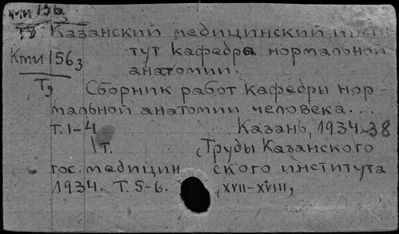 КТИ 156
Т9 Казанский медицинский инсти-
Кти 156з тут кафедра нормальной
анатомии.
Т9 Сборник работ кафедры нор-
мальной анатомии человека...
Т. 1-4 Казань, 1934-38
1 т. (Труды Казанского
гос. медицин ского института
1934. Т. 5-6. (XVII-XVIII)